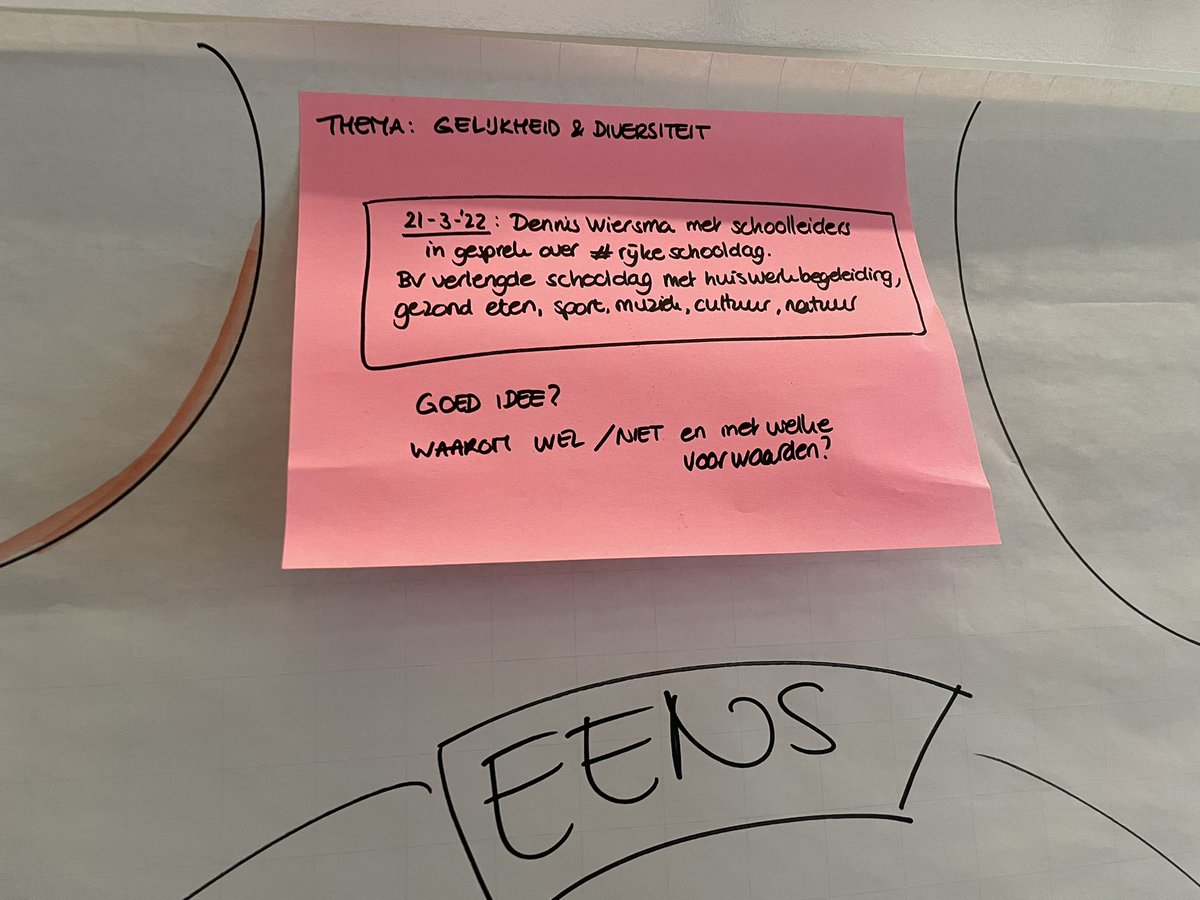 THEMA: GELIJKHEID & DIVERSITEIT
21-3-'22: Dennis Wiersma met schoolleiders
in gesprek over #rijkeschooldag.
BV verlengde schooldag met huiswerkbegeleiding,
gezond eten, sport, muziek, cultuur, natuur
GOED IDEE?
WAAROM WEL / NIET en met welke
voorwaarden?
EENS